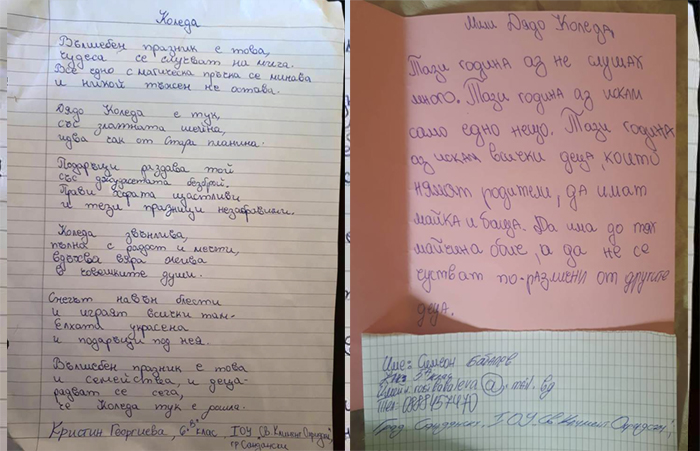 Коледа
Вълшебен празник е това,
чудеса се случват на мига.
Все едно с магическа пръчка се минава
и никой тъжен не остава.
Дядо Коледа е тук,
със златната шейна,
идва чак от Стара планина.
Подаръци раздава той
със джуджетата безброй.
Прави хората щастливи
и тези празници незабравими.
Коледа звънлива,
пълна с радост и мечти,
вдъхва вяра
в човешките души.
Снегът навън блести
и играят всички там.
Елхата украсена
и подаръци под нея.
Вълшебен празник е това
и семейства, и деца-
радват се сега,
че Коледа тук е дошла.
Кристин Георгиева, 6. клас, I ОУ "Св. Климент Охридски",
гр. Сандански
Мили Дядо Коледа,
Тази година аз не слушах
много. Тази година аз искам
само едно нещо. Тази година
аз искам всички деца, които
нямат родители, да имат
майка и баща. Да има до тях
майчина обич, а да не се
чустват по-различни от другите
деца.
Име: Симеон
клас
Имейл: @ mail.bg
Тел:
Град Сандански, I ОУ "Св. Климент Охридски"